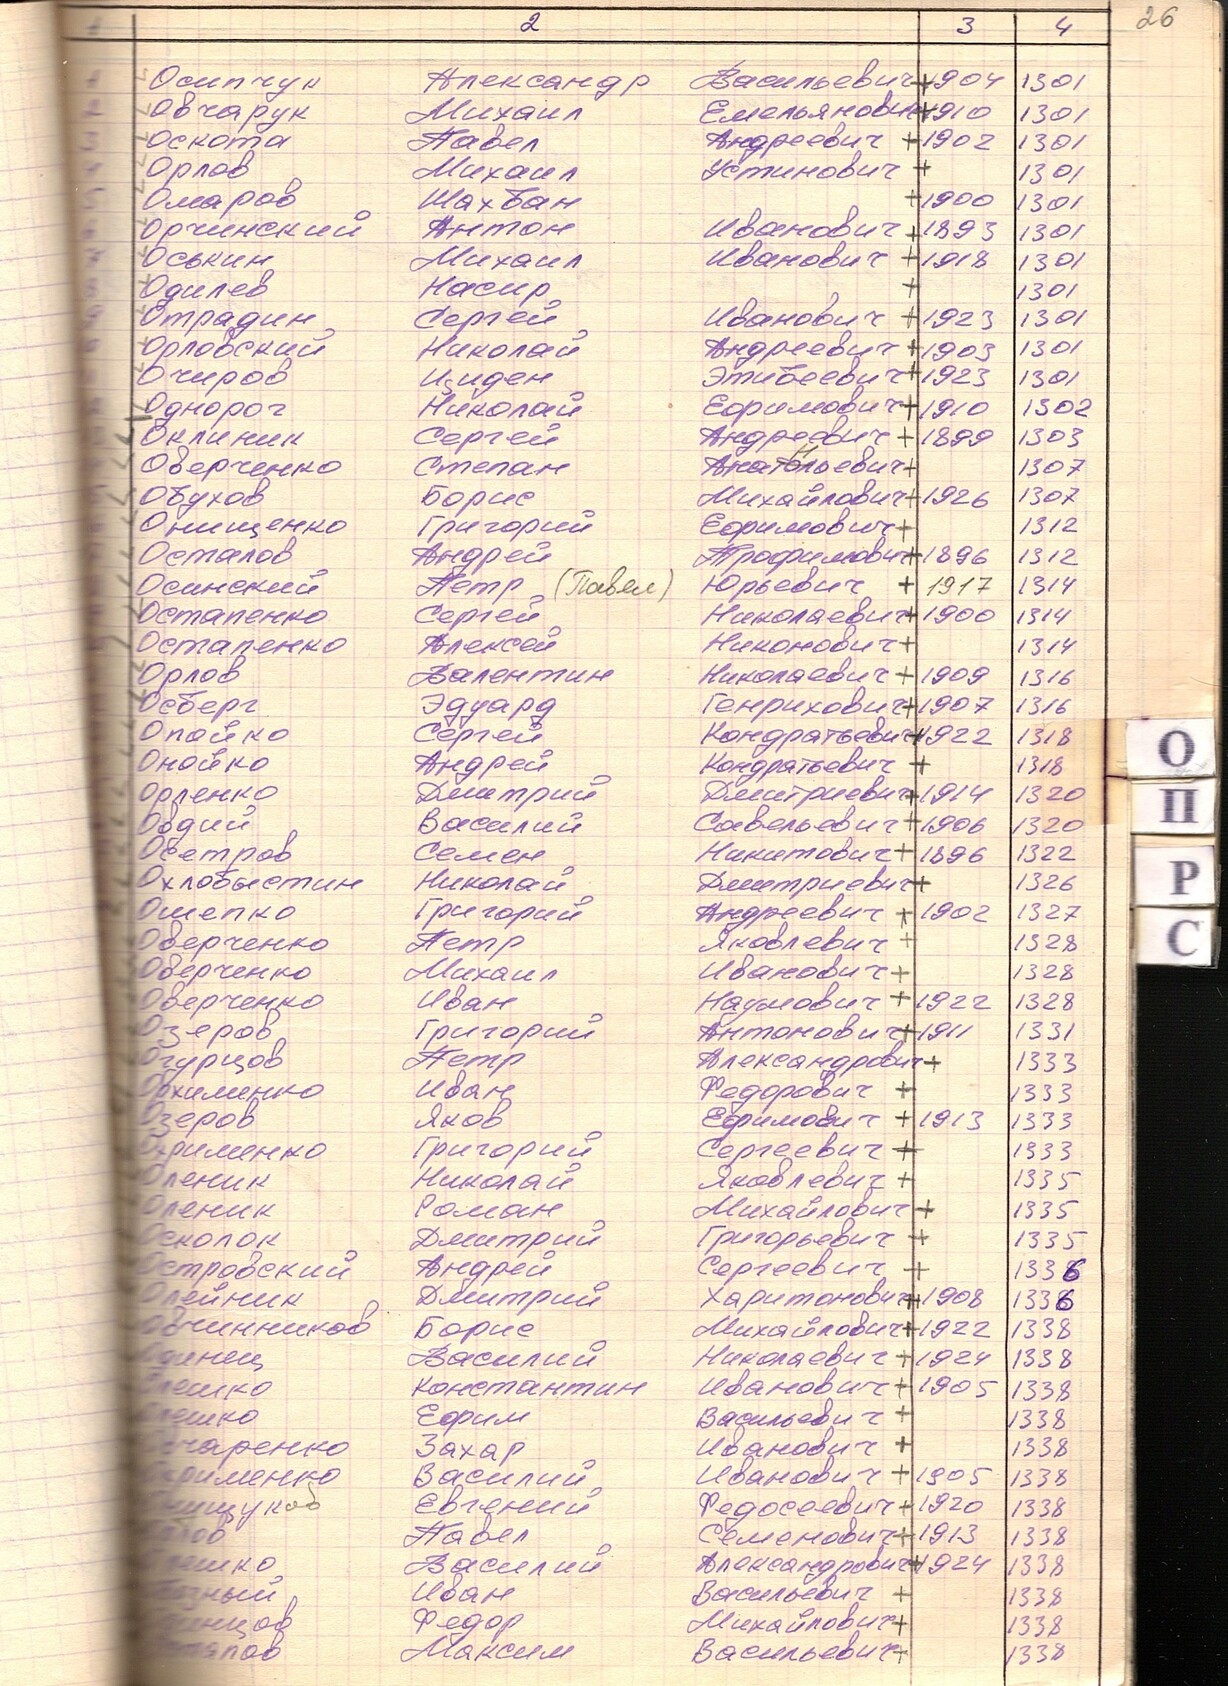 26
2 3 4
Осипчук Александр Васильевич + 1904 1301
Овчарук Михаил Емельянович + 1910 1301
Оскота Павел Андреевич + 1902 1301
Орлов Михаил Устинович + 1301
Омаров Шахбан + 1900 1301
Орчинский Антон Иванович + 1893 1301
Оськин Михаил Иванович + 1918 1301
Одилев Насир + 1301
Отрадин Сергей Иванович + 1923 1301
Орловский Николай Андреевич + 1903 1301
Очиров Циден Этибеевич + 1923 1301
Однорог Николай Ефимович + 1910 1302
Оклиник Сергей Андреевич + 1899 1303
Оверченко Степан + 1307
Обухов Борис Михайлович + 1926 1307
Онищенко Григорий Ефимович + 1312
Осталов Андрей Трофимович + 1896 1312
Осинский Петр (Павел) Юрьевич + 1917 1314
Остапенко Сергей Николаевич + 1900 1314
Остапенко Алексей Никонович + 1314
Орлов Валентин Николаевич + 1909 1316
Осберг Эдуард Генрихович + 1907 1316
Опойко Сергей Кондратьевич + 1922 1318
Онойко Андрей Кондратьевич + 1318
Орленко Дмитрий Дмитриевич + 1914 1320
Овдий Василий Савельевич + 1906 1320
Осетров Семен Никитович + 1896 1322
Охлобыстин Николай Дмитриевич + 1326
Ошепко Григорий Андреевич + 1902 1327
Оверченко Петр Яковлевич + 1328
Оверченко Михаил Иванович + 1328
Оверченко Иван Наумович + 1922 1328
Озеров Григорий Антонович + 1911 1331
Огурцов Петр Александрович + 1333
Охименко Иван Федорович + 1333
Озеров Яков Ефимович + 1913 1333
Охрименко Григорий Сергеевич + 1333
Оленик Николай Яковлевич + 1335
Оленик Роман Михайлович + 1335
Осколок Дмитрий Григорьевич + 1335
Островский Андрей Сергеевич + 1336
Олейник Дмитрий Харитонович + 1908 1336
Овчинников Борис Михайлович + 1922 1338
Одинец Василий Николаевич + 1924 1338
Олешко Константин Иванович + 1905 1338
Олешко Ефим Васильевич + 1338
Овчаренко Захар Иванович + 1338
Охрименко Василий Иванович + 1905 1338
Евгений Федосеевич + 1920 1338
Павел Семенович + 1913 1338
Олешко Василий Александрович + 1924 1338
Иван Васильевич + 1338
Федор Михайлович + 1338
Максим Васильевич + 1338
О
П
Р
С